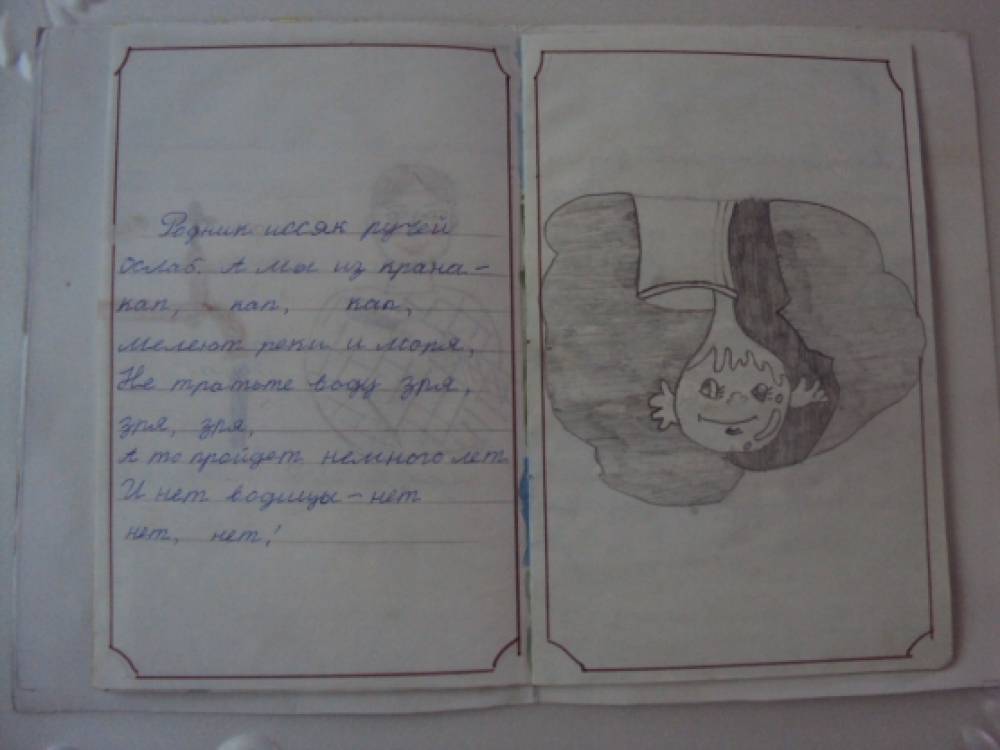 Родник иссяк ручей
ослаб. А мы из крана –
кап, кап, кап,
мелеют реки и моря,
Не тратьте воду зря,
зря, зря,
А то пройдет немного лет
И нет водицы – нет
нет, нет!